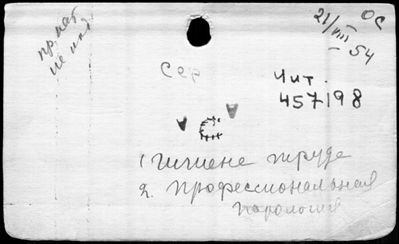 ОС
21/VIII 54
сер
Чит.
457198
1 гигиене труда
2. профессиональная
патология